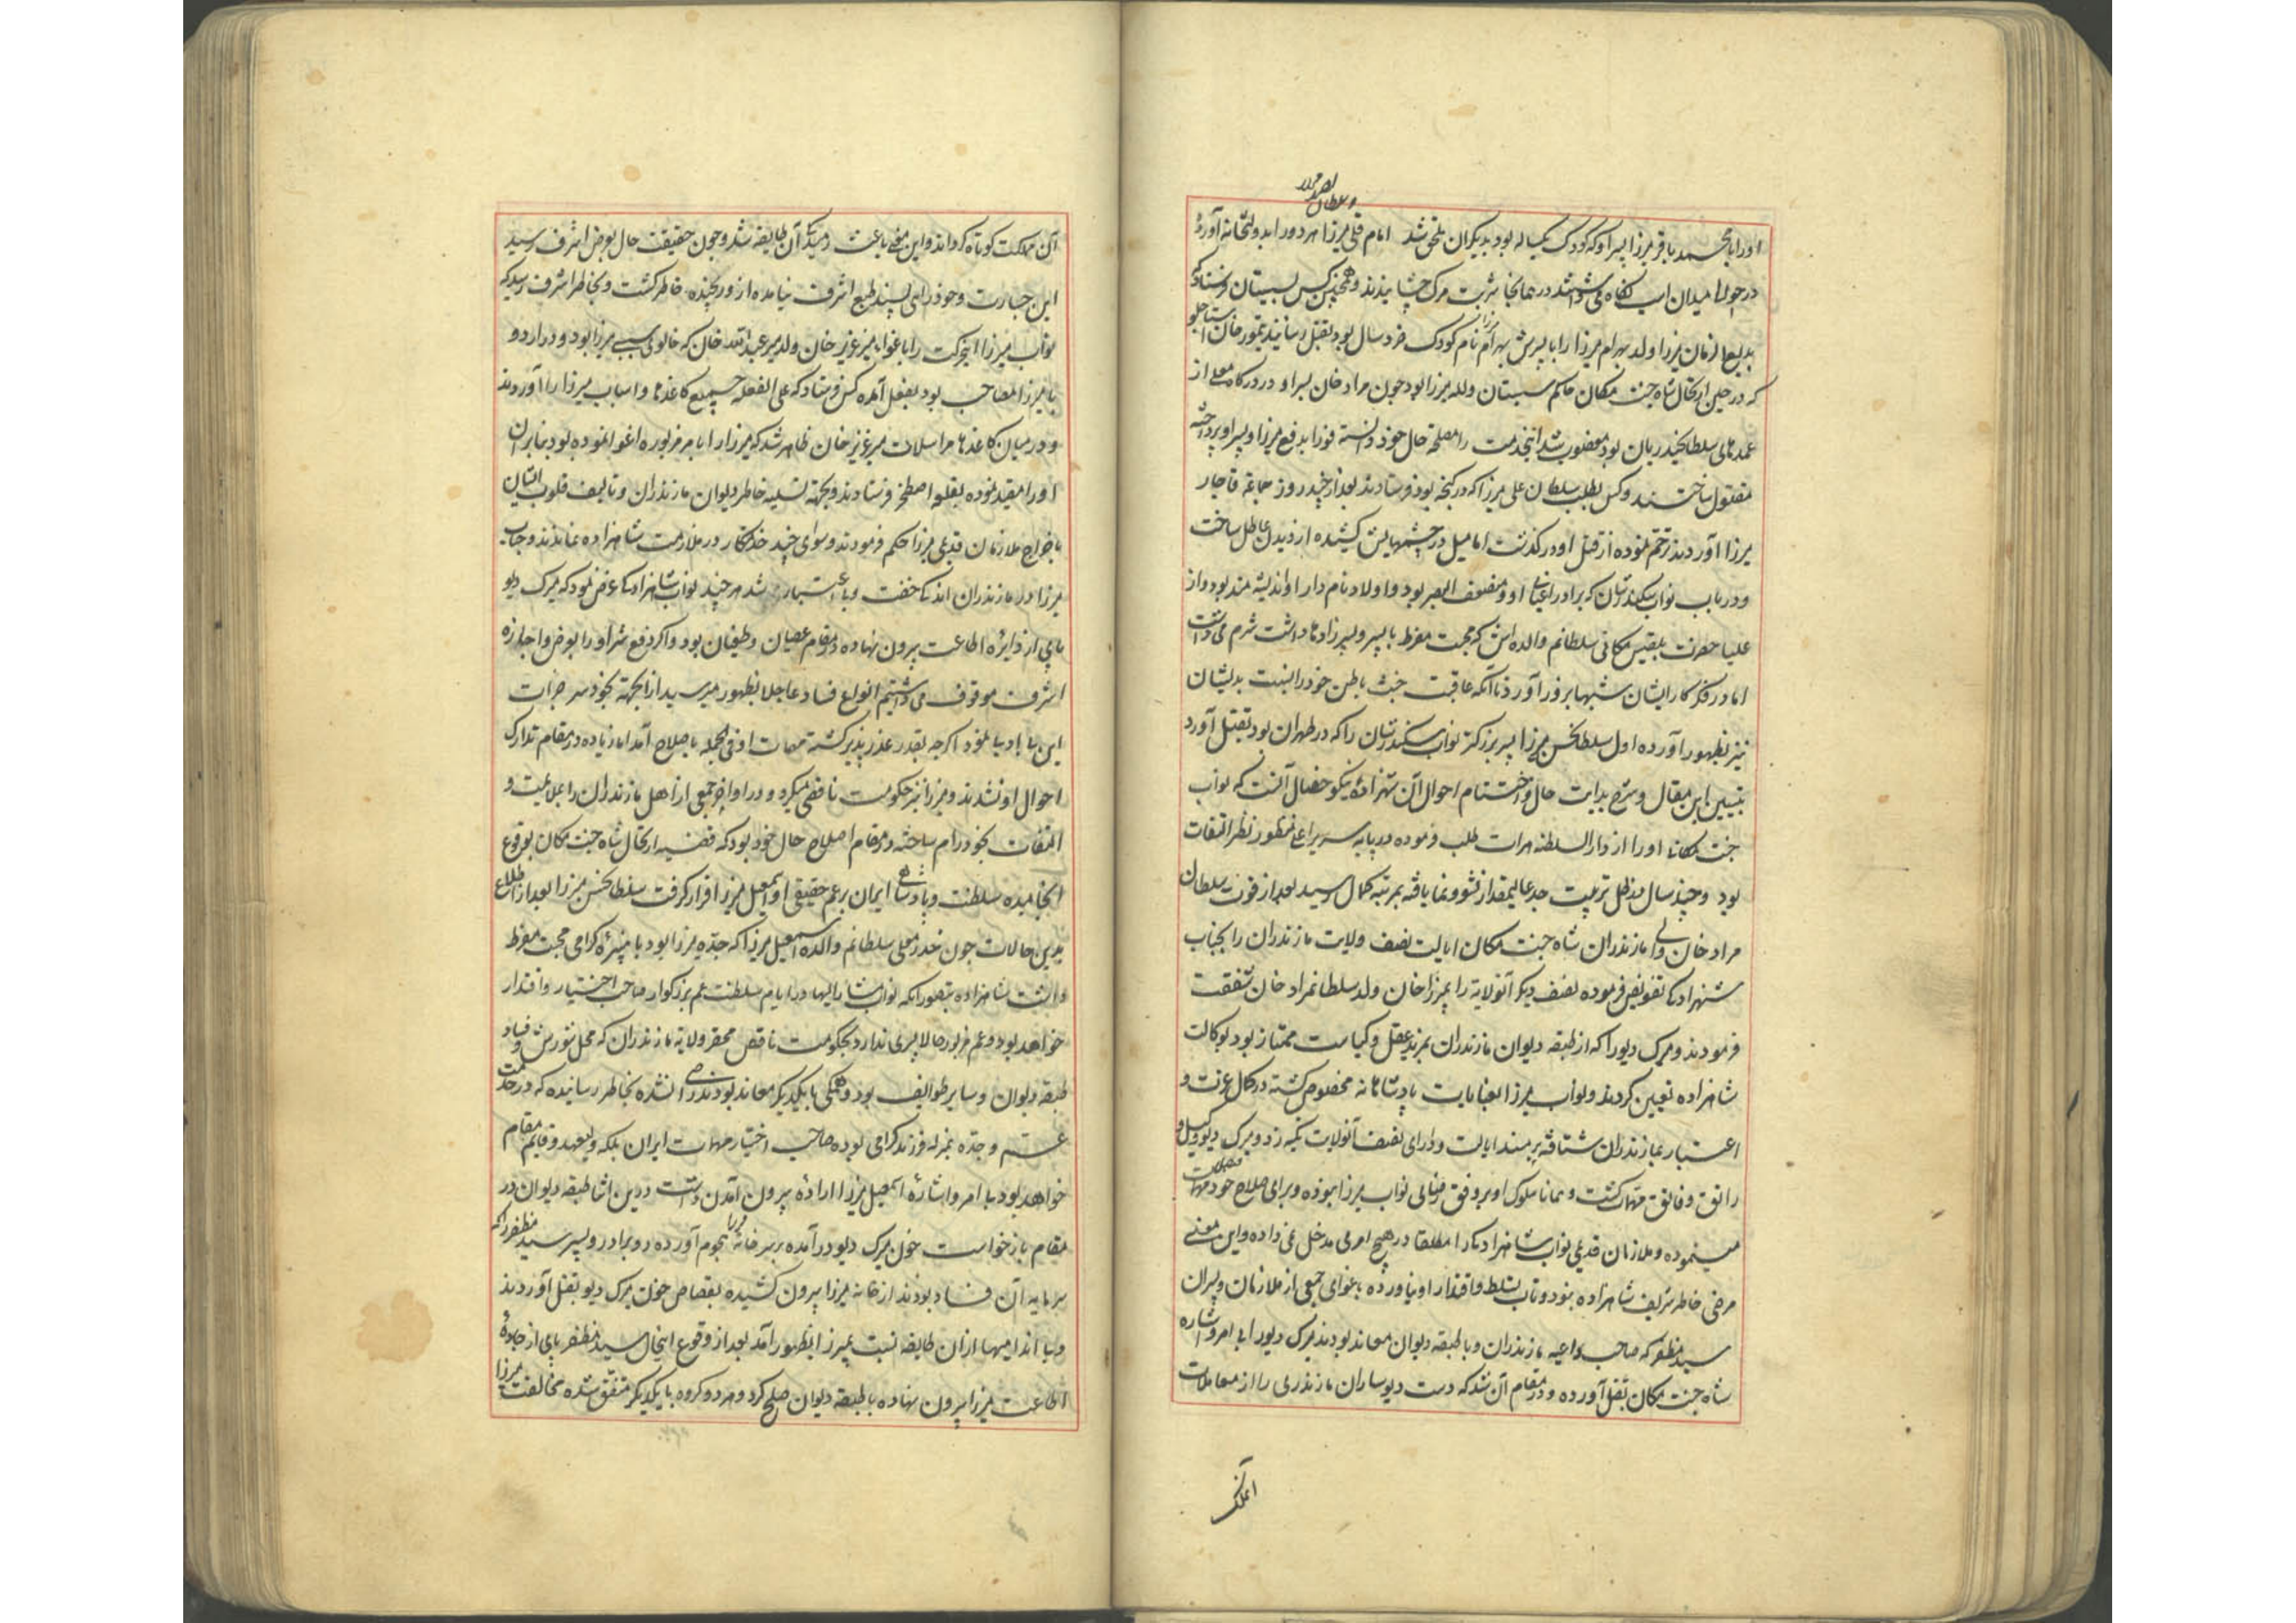 و سلطان احمد میرزا
او را با محمد باقر میرزا پسر او که کودک یکساله بود بدیگران ملحق شد امام قلی میرزا هر دو را بدولتخانه آورده
در حوالی میدان اسب نگاه می داشتند در همانجا شربت مرگ چشانیدند و همچنین کس بسیستان فرستاد که
بدیع الزمان میرزا ولد بهرام میرزا را با پسرش بهرام میرزا نام کودک خرد سال بود بقتل رسانید تیمور خان استاجلو
که در حین ارتحال شاه جنت مکان حاکم سیستان و لله میرزا بود چون مراد خان پسر او در درگاه معلی از
عمدهای سلطان حیدریان بود مغضوب شد اینخدمت را مصلحة حال خود دانسته فورا بدفع میرزا و پسر او پرداخته
مقتول ساختند و کس بطلب سلطان علی میرزا که در گنجه بود فرستادند بعد از چند روز جماعة قاجار
میرزا آوردند ترحم نموده از قتل او درگذشت اما میل در چشمهایش کشیده از دیدن عاطل ساخت
و در باب نواب سکندر شان که برادر اعیانی او و ضعیف البصر بود و اولاد نام دار او اندیشه مند بود و از
علیا حضرت بلقیس مکانی سلطانم والده اش که محبت مفرط با پسر و پسر زادها داشت شرم می داشت
اما در فکر کار ایشان شبها بروز آورد تا آنکه عاقبت خبث باطن خود را بنسبت بدیشان
نیز بظهور آورده اول سلطان حسن میرزا پسر بزرگتر نواب سکندر شان را که در طهران بود بقتل آورد
تبیین این مقال و شرح بدایت حال و اختتام احوال آن شهزاده نیکو خصال آنست که نواب
جنت مکانی او را از دار السلطنه هرات طلب فرموده در پایه سریر اعلی منظور نظر التفات
بود و چند سال در ظل تربیت جد عالیمقدار نشو و نما یافته بمرتبه کمال رسید بعد از فوت سلطان
مراد خان والی مازندران شاه جنت مکان ایالت نصف ولایت مازندران را بجناب
شهزاده تفویض فرموده نصف دیگر آنولایة را بمیرزا خان ولد سلطانمراد خان شفقت
فرمودند و میرک دیو را که از طبقه دیوان مازندران بمزید عقل و کیاست ممتاز بود بوکالت
شاهزاده تعیین کردند و نواب میرزا بعنایات پادشاهانه مخصوص گشته در کمال عزت و
اعتبار بمازندران شتافته بر مسند ایالت و دارای نصف آنولایت تکیه زد و میرک دیو وکیل و
راتق و فاتق مهمات گشت و همانا سلوک او بر وفق رضای نواب میرزا نبوده و برای صلاح خود مهمات
مینموده و ملازمان قدیمی نواب شاهزاده را مطلقا در هیچ امری مدخل نمی داده و این معنی
مرضی خاطر شریف شاهزاده نبود و تاب تسلط و اقتدار او نیاورده باغوای جمعی از ملازمان و پسران
سید مظفر که صاحب داعیه مازندران و با طبقه دیوان معاند بودند میرک دیو را بی امر و اشاره
شاه جنت مکان بقتل آورده و در مقام آن شد که دست دیو ساران مازندری را از معاملات
آن مملکت کوتاه گرداند و این معنی باعث رمیدگی آن طایفه شد و چون حقیقت حال بعرض اشرف رسید
این جسارت و خود رایی پسند طبع اشرف نیامده از و رنجیده خاطر گشت و بخاطر اشرف رسید که
نواب میرزا اینحرکت را باغواء میر عزیز خان ولد میر عبد الله خان که خالوی سببی میرزا بود و در اردو
با میرزا مصاحب بود بفعل آمده کس فرستاد که علی الغفله جمیع کاغذها و اسباب میرزا را آوردند
و در میان کاغذها مراسلات میر عزیز خان ظاهر شد که میرزا را با مر مزبوره اغوا نموده بود بنابر آن
او را مقید نموده بقلعه اصطخر فرستادند و بجهة تسلیه خاطر دیوان مازندران و تالیف قلوب ایشان
باخراج ملازمان قدیمی میرزا حکم فرمودند و سوای چند خدمتکار در ملازمت شاهزاده نماندند و جناب
میرزا در مازندران اندک خفت و بی اعتبار شد هر چند نواب شاهزاده عرض نمود که میرک دیو
پای از دایره اطاعت بیرون نهاده در مقام عصیان و طغیان بود و اگر دفع شر او را بعرض و اجازه
اشرف موقوف می داشتیم انواع فساد عاجلا بظهور میرسید از انجهة بخود سر جرات
این بی ادبیها نمود اگرچه بقدر عذر پذیر گشته مهمات او فی الجمله باصلاح آمد اما زیاده در مقام تدارک
احوال او نشدند و میرزا نیز حکومت ناقصی میکرد و در اواخر جمعی از اهل مازندران را بملایمت و
التفات بخود رام ساخته در مقام اصلاح حال خود بود که قضیه ارتحال شاه جنت مکان بوقوع
انجامیده سلطنت و پادشاهی ایران بر عم حقیقی او اسمعیل میرزا قرار گرفت سلطان حسن میرزا بعد از اطلاع
بدین حالات چون خدر معلی سلطانم والده اسمعیل میرزا که جده میرزا بود با نبیره گرامی محبت مفرط
داشت شاهزاده بتصور انکه نواب مشار الیها در ایام سلطنت عم بزرگوار صاحب اختیار و اقتدار
خواهد بود و عم مزبور حالا پسری ندارد بحکومت ناقص محقر ولایة مازندران که محل شورش و فساد
طبقه دیوان و سایر طوایف بود و همگی با یکدیگر معاند بودند راضی نشده بخاطر رسانیده که در خدمت
عم و جده بمنزله فرزند گرامی بوده صاحب اختیار مهمات ایران بلکه ولیعهد و قایم مقام
خواهد بود با امر و اشارۀ اسمعیل میرزا اراده بیرون آمدن داشت در این اثنا طبقه دیوان در
مقام بازخواست خون میرک دیو در آمده بر سر خانه میرزا هجوم آورده دو برادر و پسر سید مظفر را که
سرمایه آن فساد بودند از خانه میرزا بیرون کشیده بقصاص خون میرک دیو بقتل آوردند
و بی اندامیها از ان طایفه نسبت بمیرزا بظهور آمد بعد از وقوع اینحال سید مظفر پای از جادۀ
اطاعت میرزا بیرون نهاده با طبقه دیوان صلح کرد و هر دو گروه با یکدیگر متفق شده مخالفت میرزا